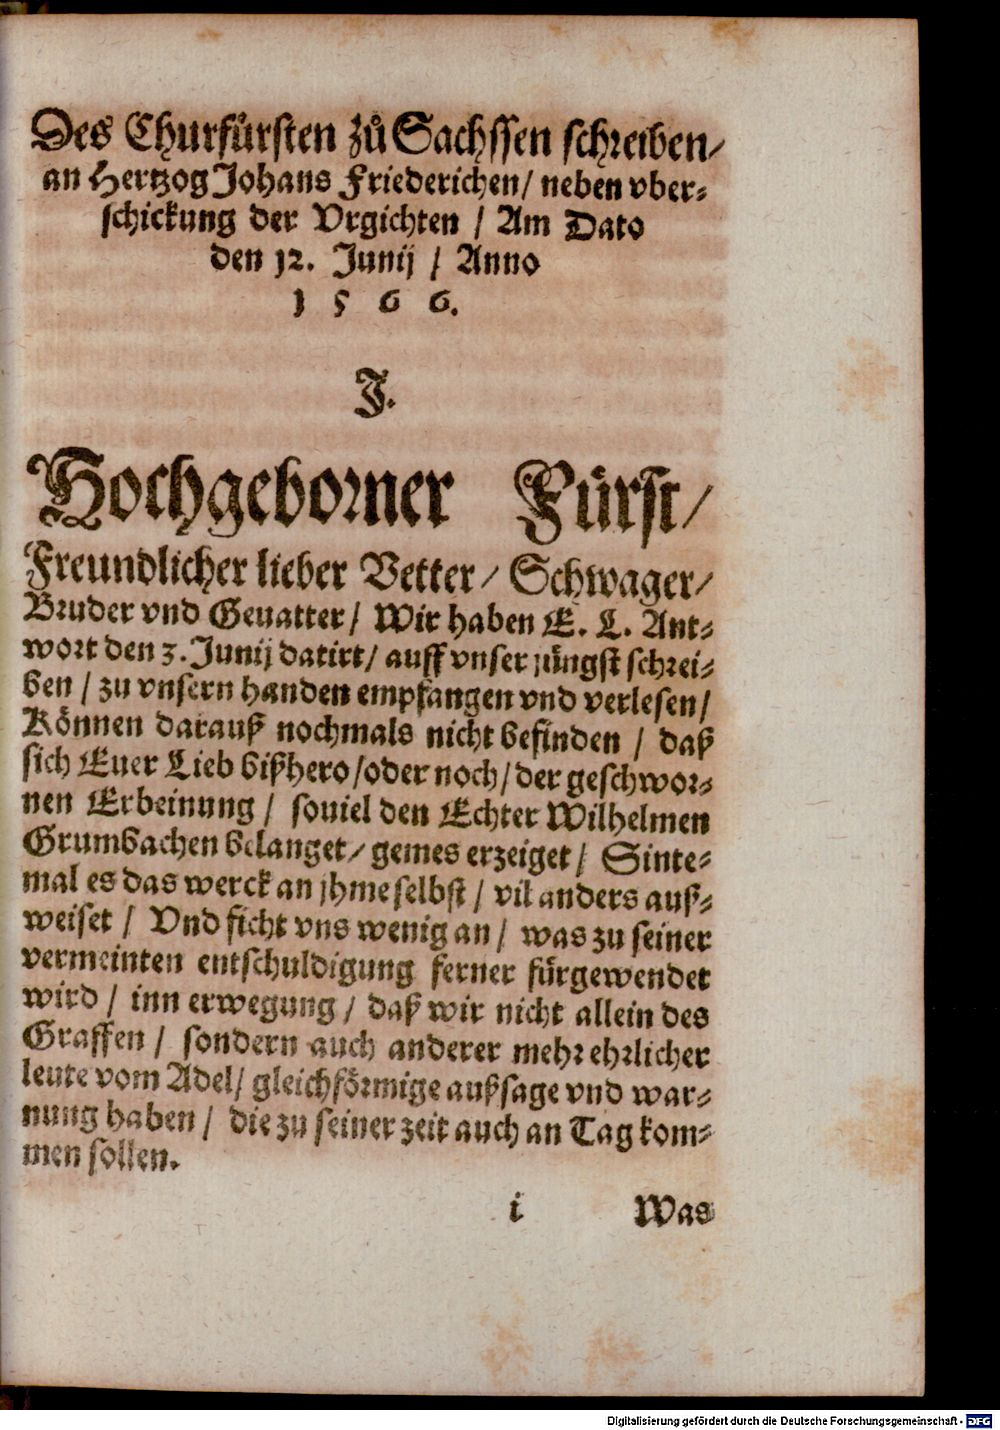 Des Churfürsten zů Sachssen schreiben/
an Hertzog Johans Friederichen/ neben vber-
schickung der Vrgichten / Am Dato
den 12. Junij / Anno
1 5 6 6.
J.
Hochgeborner Fürst/
Freundlicher lieber Vetter/ Schwager/
Bruder vnd Geuatter/ Wir haben E. L. Ant-
wort den 3. Junij datirt/ auff vnser jüngst schrei-
ben / zu vnsern handen empfangen vnd verlesen/
Können darauß nochmals nicht befinden / daß
sich Euer Lieb bißhero/oder noch/ der geschwor-
nen Erbeinung / souiel den Echter Wilhelmen
Grumbachen belanget/ gemes erzeiget/ Sinte-
mal es das werck an jhme selbst / vil anders auß-
weiset / Vnd ficht vns wenig an / was zu seiner
vermeinten entschuldigung ferner fürgewendet
wird / inn erwegung / daß wir nicht allein des
Graffen / sondern auch anderer mehr ehrlicher
leute vom Adel/ gleichförmige außsage vnd war-
nung haben / die zu seiner zeit auch an Tag kom-
men sollen.
i Was
Digitalisierung gefördert durch die Deutsche Forschungsgemeinschaft - DFG